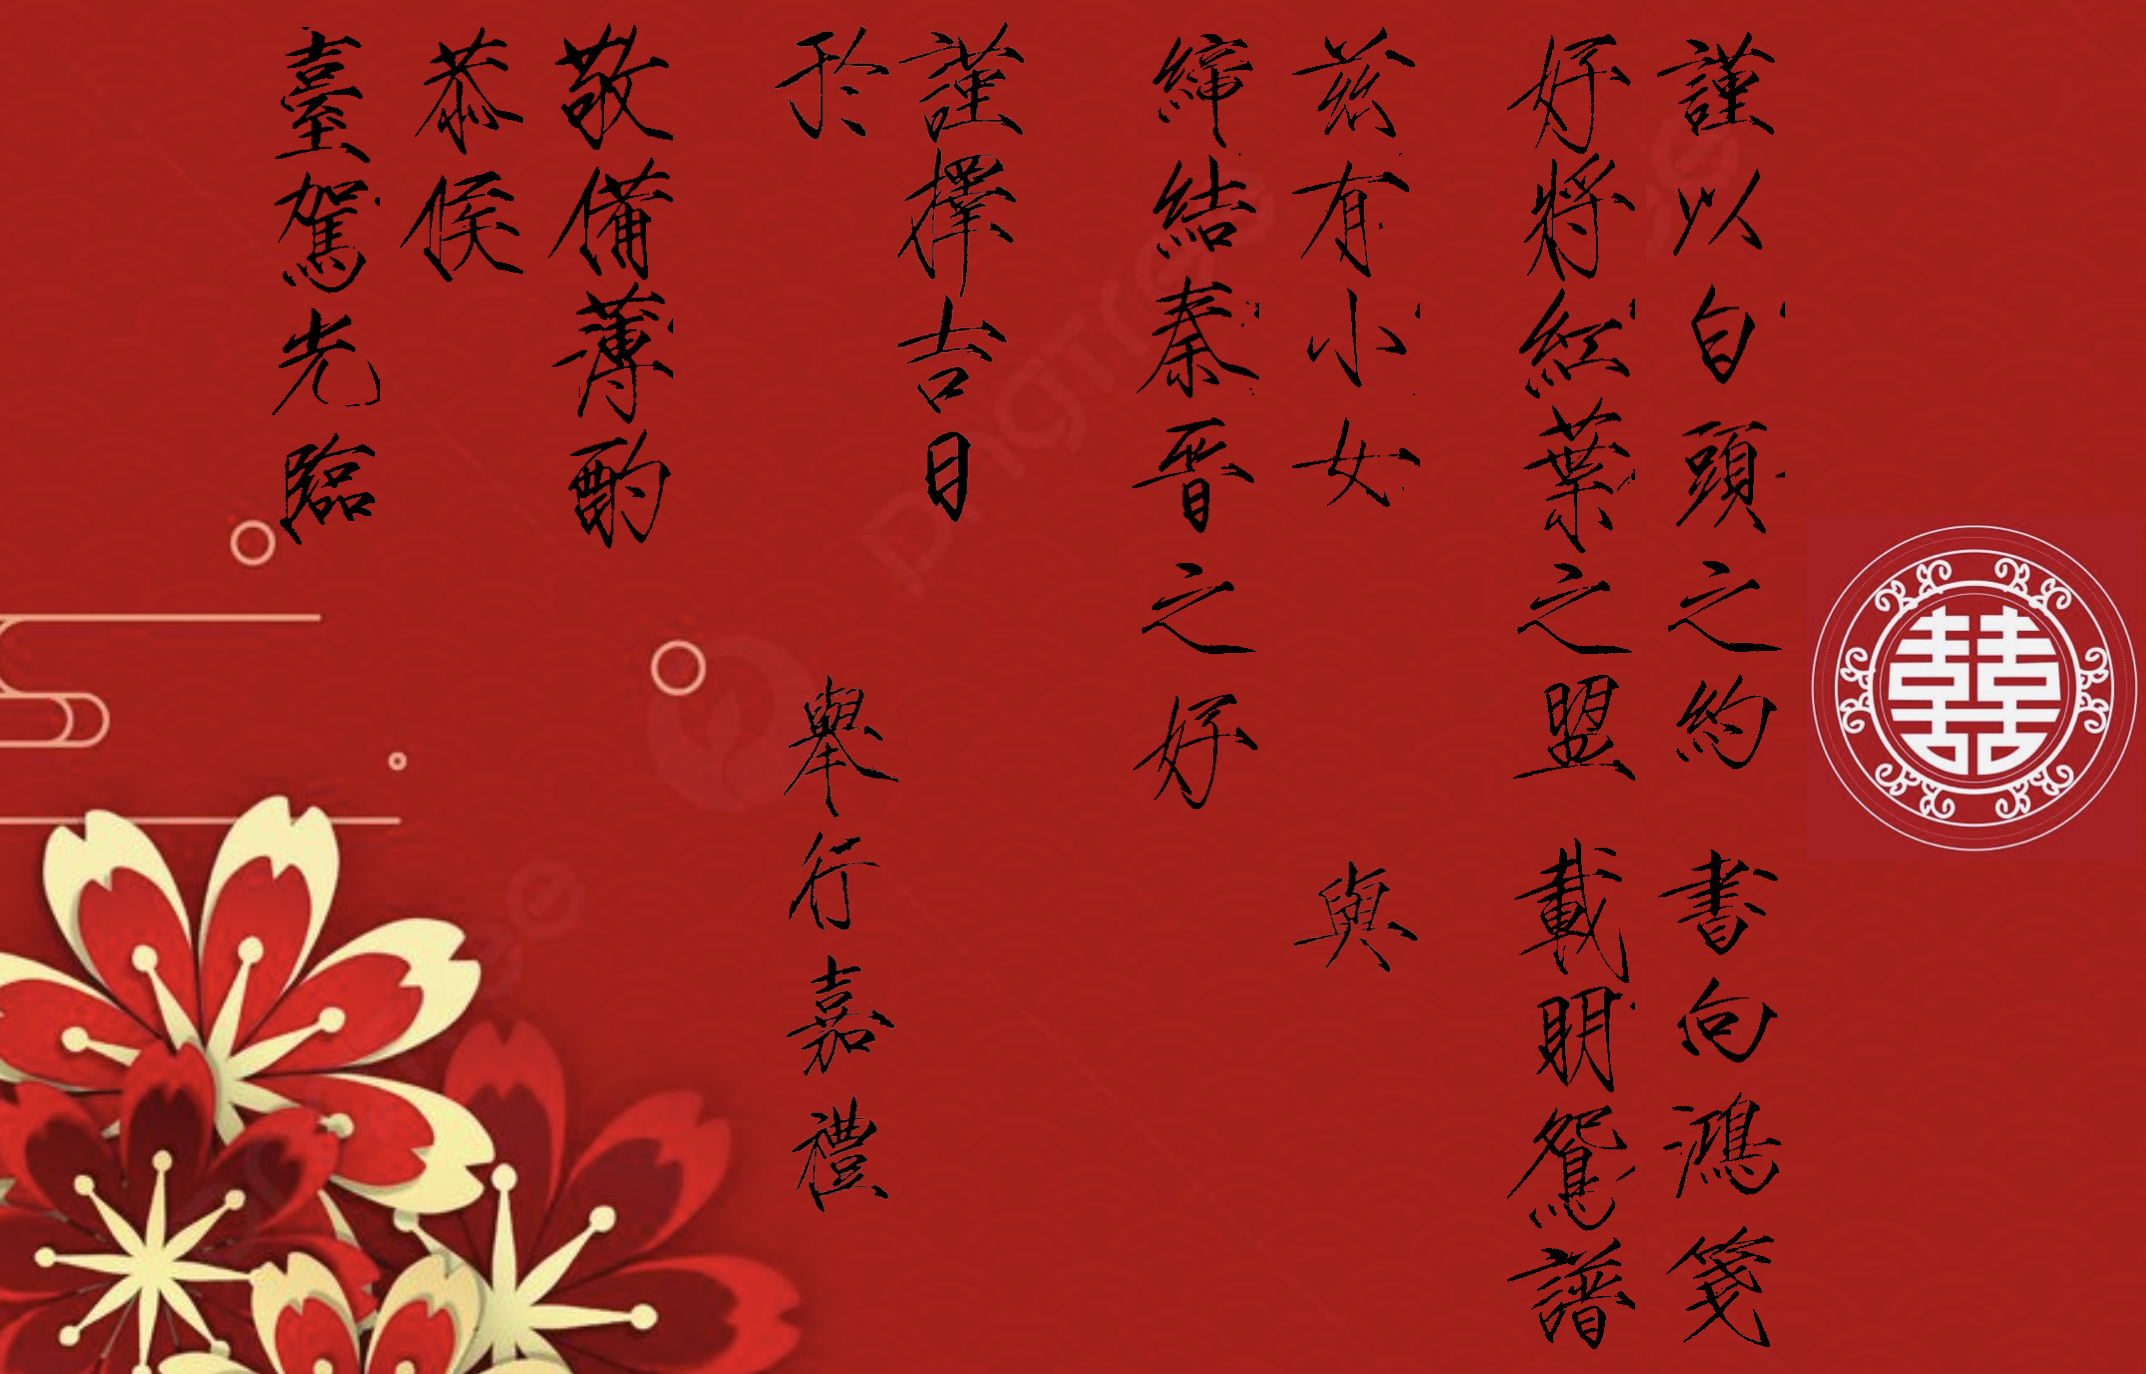 謹以白頭之約 書向鴻箋
好將紅葉之盟 載明鴛譜
茲有小女 與
締結秦晉之好
謹擇吉日
於 舉行嘉禮
敬備薄酌
恭候
臺駕光臨
囍
pngtree